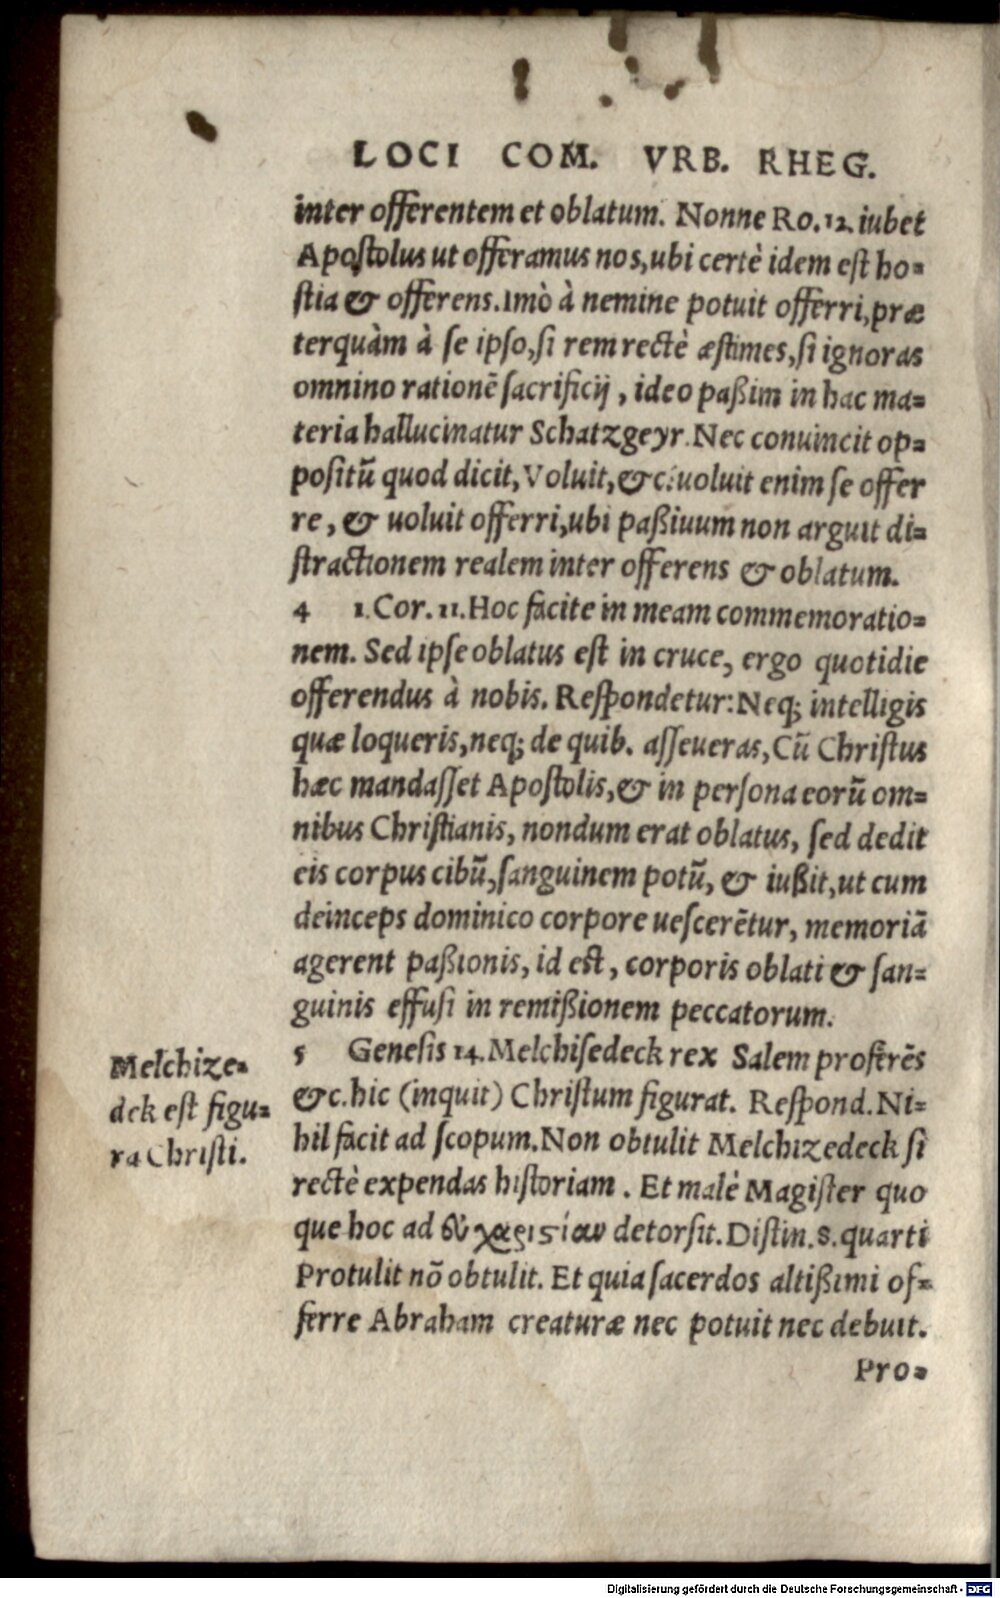 LOCI COM. VRB. RHEG.
inter offerentem et oblatum. Nonne Ro. 12. iubet
Apostolus ut offeramus nos, ubi certè idem est ho=
stia & offerens. Imò à nemine potuit offerri, præ
terquàm à se ipso, si rem rectè æstimes, si ignoras
omnino rationē sacrificij, ideo paßim in hac ma=
teria hallucinatur Schatzgeyr. Nec conuincit op=
positū quod dicit, Voluit, &c. uoluit enim se offer
re, & uoluit offerri, ubi paßiuum non arguit di=
stractionem realem inter offerens & oblatum.
4 1. Cor. 11. Hoc facite in meam commemoratio=
nem. Sed ipse oblatus est in cruce, ergo quotidie
offerendus à nobis. Respondetur: Neq; intelligis
quæ loqueris, neq; de quib. asseueras, Cū Christus
hæc mandasset Apostolis, & in persona eorū om=
nibus Christianis, nondum erat oblatus, sed dedit
eis corpus cibū, sanguinem potū, & iußit, ut cum
deinceps dominico corpore uescerētur, memoriā
agerent paßionis, id est, corporis oblati & san=
guinis effusi in remißionem peccatorum.
5 Genesis 14. Melchisedeck rex Salem proferēs
&c. hic (inquit) Christum figurat. Respond. Ni=
hil facit ad scopum. Non obtulit Melchizedeck si
rectè expendas historiam. Et malè Magister quo
que hoc ad ἐυχαριστίαν detorsit. Distin. 8. quarti
Protulit nō obtulit. Et quia sacerdos altißimi of=
ferre Abraham creaturæ nec potuit nec debuit.
Pro=
Melchize=
dek est figu=
ra Christi.
Digitalisierung gefördert durch die Deutsche Forschungsgemeinschaft - DFG